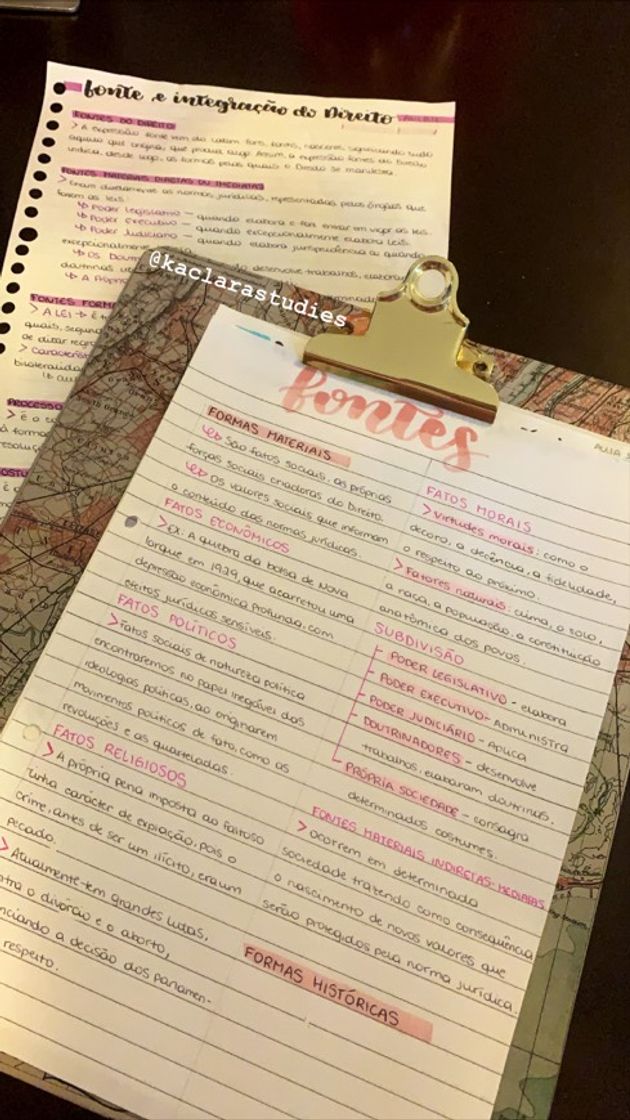 fonte e integração do Direito
FONTES DO DIREITO
> A expressão fonte vem do latim fons, fontis, nascente, significando tudo
aquilo que origina, que produz algo. Assim, a expressão fontes do Direito
indica, desde logo, as formas pelas quais o Direito se manifesta.
FONTES MATERIAIS DIRETAS OU IMEDIATAS
> Criam diretamente as normas jurídicas, representadas pelos órgãos que
fazem as leis:
↳ Poder Legislativo — quando elabora e faz entrar em vigor as leis.
↳ Poder Executivo — quando excepcionalmente elabora leis.
↳ Poder Judiciário — quando elabora jurisprudência ou quando
excepcionalmente
↳ Os Dout desenvolve trabalhos, elabora
doutrinas
↳ A Própri
FONTES FORMA
> A LEI → É
quais, segund
de ditar regra
> Caracterís
bilateralida
PROCESSO
> É o c
à forma
resoluç
@kaclarastudies
fontes
AULA
FORMAS MATERIAIS
↳ São fatos sociais, as próprias
forças sociais criadoras do Direito.
↳ Os valores sociais que informam
o conteúdo das normas jurídicas.
FATOS ECONÔMICOS
> EX: A quebra da bolsa de Nova
Iorque em 1929, que acarretou uma
depressão econômica profunda, com
efeitos jurídicos sensíveis.
FATOS POLÍTICOS
> Fatos sociais de natureza política
encontraremos no papel inegável das
ideologias políticas, ao originarem
movimentos políticos de fato, como as
revoluções e as quarteladas.
FATOS RELIGIOSOS
> A própria pena imposta ao faltoso
tinha carácter de expiação, pois o
crime, antes de ser um ilícito, era um
pecado.
> Atualmente tem grandes lutas,
ntra o divórcio e o aborto,
nciando a decisão dos parlamen-
respeito.
FATOS MORAIS
> Virtudes morais: como o
decoro, a decência, a fidelidade,
o respeito ao próximo.
> Fatores naturais: clima, o solo,
a raça, a população, a constituição
anatômica dos povos.
SUBDIVISÃO
PODER LEGISLATIVO - elabora
PODER EXECUTIVO - Administra
PODER JUDICIÁRIO - Aplica
DOUTRINADORES - desenvolve
trabalhos, elaboram doutrinas.
PRÓPRIA SOCIEDADE - consagra
determinados costumes.
FONTES MATERIAIS INDIRETAS: MEDIATAS
> ocorrem em determinada
sociedade trazendo como consequência
o nascimento de novos valores que
serão protegidos pela norma jurídica.
FORMAS HISTÓRICAS